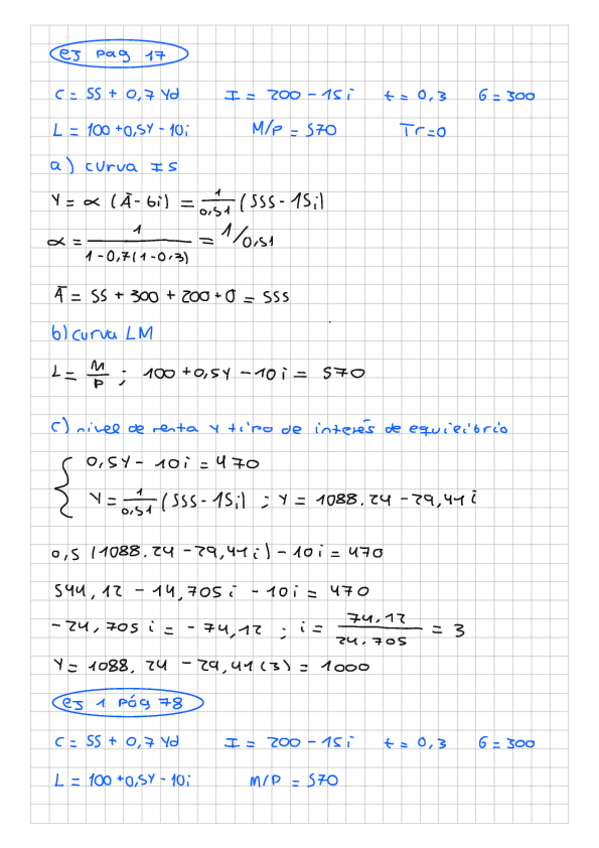 ej pag 17
C = 55 + 0,7 Yd I = 200 - 15i t = 0,3 G = 300
L = 100 + 0,5Y - 10i M/P = 570 Tr=0
a) curva IS
Y = α (Ā - bi) = 1/0,51 (555 - 15i)
α = 1/1-0,7(1-0,3) = 1/0,51
Ā = 55 + 300 + 200 + 0 = 555
b) curva LM
L = M/P ; 100 + 0,5Y - 10i = 570
c) nivel de renta y tipo de interés de equilibrio
0,5Y - 10i = 470
Y = 1/0,51 (555 - 15i) ; Y = 1088.24 - 29,41i
0,5 (1088.24 - 29,41i) - 10i = 470
544,12 - 14,705i - 10i = 470
-24,705i = -74,12 ; i = 74,12/24.705 = 3
Y = 1088.24 - 29,41(3) = 1000
ej 1 pág 78
C = 55 + 0,7 Yd I = 200 - 15i t = 0,3 G = 300
L = 100 + 0,5Y - 10i M/P = 570